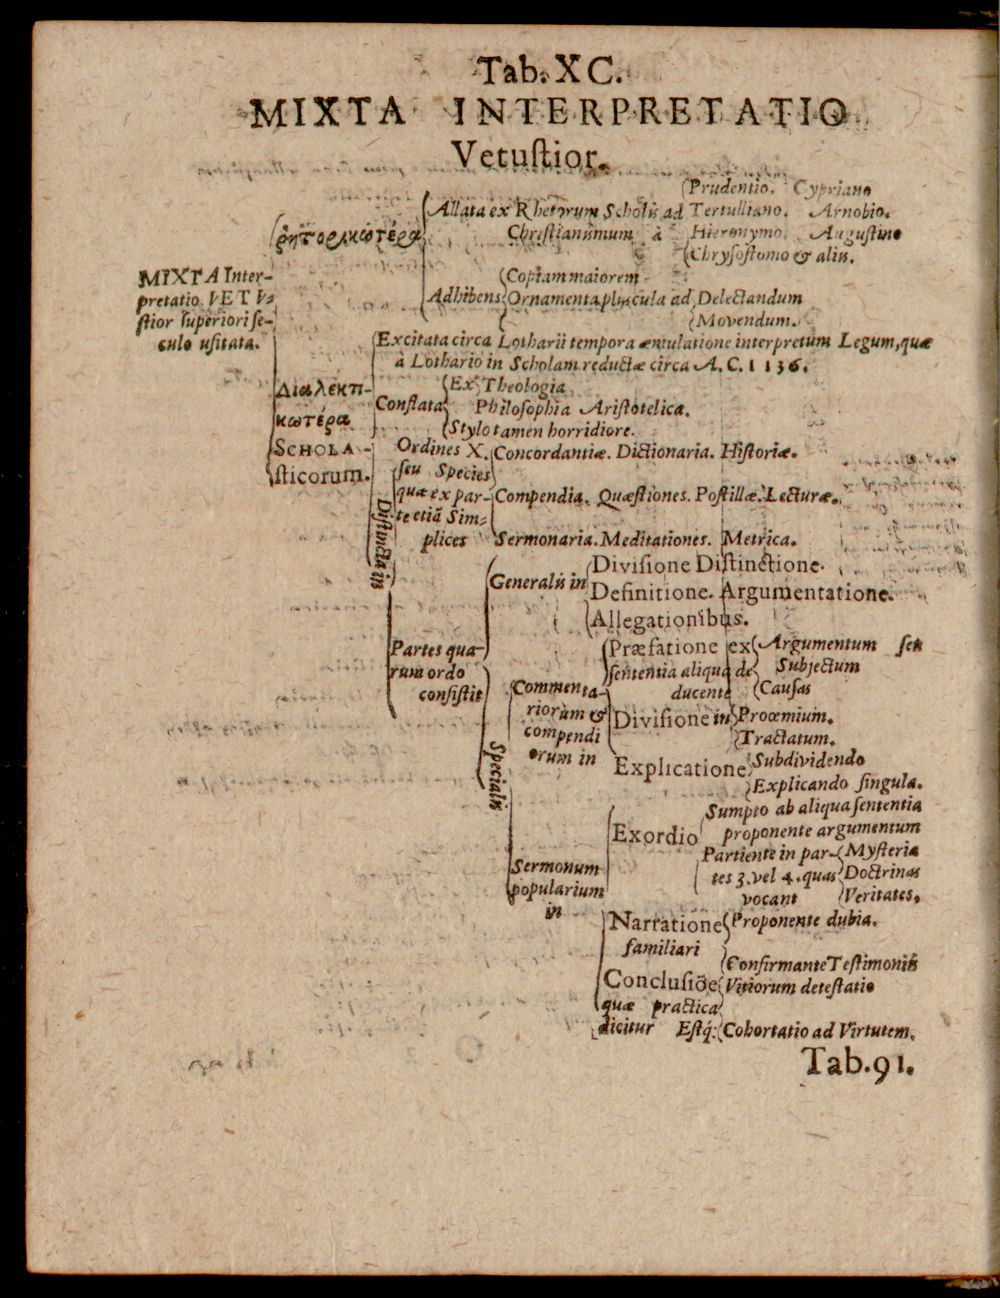 Tab. XC.
MIXTA INTERPRETATIO
Vetuſtior.
Prudentio. Cypriano
Allata ex Rhetorum Scholis ad Tertulliano. Arnobio.
ῥητορικωτέρα Chriſtianiſmum à Hieronymo. Auguſtino
Chryſoſtomo & aliis.
MIXTA Inter-
pretatio VETV-
ſtior ſuperiori ſe-
culo uſitata.
Copiam maiorem
Adhibens Ornamenta pluſcula ad Delectandum
Movendum.
Excitata circa Lotharii tempora æmulatione interpretum Legum, quæ
à Lothario in Scholam reductæ circa A. C. 1136.
Διαλεκτι-
κωτέρα
SCHOLA-
ſticorum.
Ex Theologia
Conflata Philoſophia Ariſtotelica.
Stylo tamen horridiore.
Diſtincta in
Ordines X. Concordantiæ. Dictionaria. Hiſtoriæ.
ſeu Species
quæ ex par- Compendia. Quæſtiones. Poſtillæ. Lecturæ.
te etiã Sim-
plices Sermonaria. Meditationes. Metrica.
Diviſione Diſtinctione.
Generalis in Definitione. Argumentatione.
Allegationibus.
Partes qua-
rum ordo
conſiſtit
Specialis
Præfatione ex Argumentum ſeu
ſententia aliqua de Subjectum
ducente Cauſas
Commenta-
riorum &
compendi
orum in
Diviſione in Proœmium.
Tractatum.
Explicatione Subdividendo
Explicando ſingula.
Sumpto ab aliqua ſententia
Exordio proponente argumentum
Partiente in par- Myſteria
tes 3. vel 4. quas Doctrinas
vocant Veritates.
Sermonum
popularium
in
Narratione Proponente dubia.
familiari
Confirmante Teſtimoniis
Concluſiõe Vitiorum deteſtatio
quæ practica
dicitur Eſtq́; Cohortatio ad Virtutem.
Tab. 91.